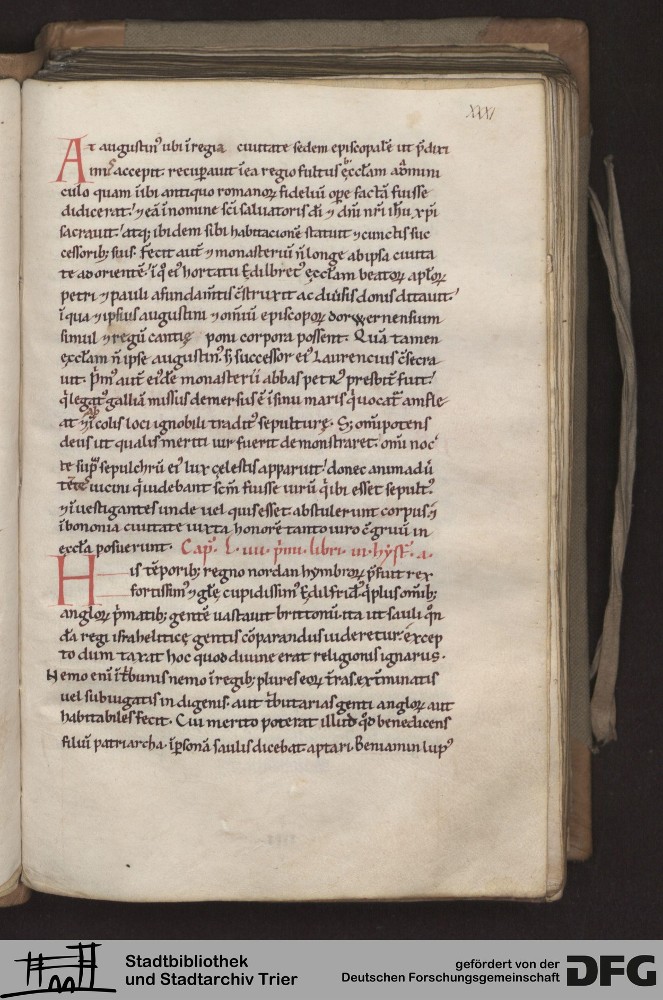 XXXI
At augustin᷒ ubi ı̄ regia ciuitate sedem episcopalē ut p̄dixi
im᷒ accepit. recup̄auit ı̄ ea regio fultus ęccƚam admini
culo quam ı̄ ibi antiquo romanoꝝ fideliū oꝑe factā fuisse
didicerat. ⁊ eā ı̄ nomine sc̄i saluatoris dı̄ ⁊ dn̄i nr̄i ihū xp̄i
sacrauit. atq; ibidem sibi habitacionē statuit ⁊ cunctis suc
cessorib; suis. Fecit aut̄ ⁊ monasteriū n̄ longe ab ipsa ciuita
te ad orientē. ı̄ q̊ ei᷒ hortatu Edilbret᷒ ęccƚam beatoꝝ apƚoꝝ
petri ⁊ pauli a fundam̄tis c̄struxit ac diu̅sis donis ditauit
ı̄ qua ⁊ ipsius augustini ⁊ om̄iū episcopoꝝ doruuernensium
simul ⁊ regū cantię poni corpora possent. Quā tamen
ęccƚam n̄ ipse augustin᷒ s̄ successor ei᷒ Laurencius c̄secra
uit. Prim᷒ aut̄ ei᷒dē monasterii abbas petr᷒ presbit̄ fuit.
q̇ legat᷒ galliā missus demersus ē ı̄ sinu maris q̇ uocat᷑ amfle
at ⁊ ab ı̄colis loci ignobili tradit᷒ sepulturę. S; om̄ipotens
deus ut qualis meriti uir fuerit demonstraret. om̄i noc
te sup̄ sepulchrū ei᷒ lux cęlestis apparuit. donec animadū
tētes uicini q̇ uidebant sc̄m fuisse uirū q̇ ibi esset sepult᷒.
⁊ ı̄uestigantes unde uel quis esset abstulerunt corpus. ⁊
ı̄ bononia ciuitate iuxta honorē tanto uiro c̄gruū in
ęccƚa posuerunt. Cap̄. L. uii. p̄mi. libri. in hyst̄. a.
His tēporib; regno nordanhymbroꝝ p̄fuit rex
fortissim᷒ ⁊ gƚę cupidissim᷒ Edilfrid᷒. q̇ plus om̄ib;
angloꝝ p̄matib; gentē uastauit brittonū. ita ut sauli q̊n
dā regi israheliticę gentis cōparandus uideretur. excep
to dum taxat hoc quod diuinę erat religionis ignarus.
Nemo enī ı̄ t̄bunis nemo ı̄ regib; plures eoꝝ t̄ras. ext̄minatis
uel subiugatis indigenis. aut t̄butarias genti angloꝝ aut
habitabiles fecit. Cui merito poterat illud q̊d benedicens
filiū patriarcha. ı̄ p̄sonā saulis dicebat. aptari. Beniamin lup᷒
Stadtbibliothek
und Stadtarchiv Trier
gefördert von der
Deutschen Forschungsgemeinschaft
DFG